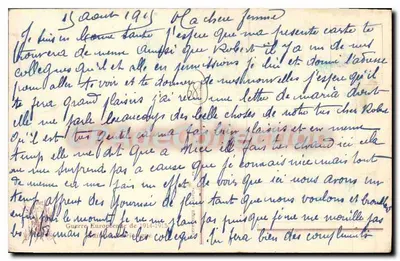 15 août 1915 Ma chère femme
Je suis en bonne santé j'espère que ma présente carte te
trouvera de meme aussi que Robert il y a un de mes
collegues qu'il et allé en permissions je lui et donné l'adresse
pour aller te voir et te donner de mes nouvelles j'espère qu'il
te fera grand plaisirs j'ai reçu une lettre de maria dont
elle me parle beaucoups des belle choses de notre très cher Robert
Qu'il est très gentil sa ma fai bien plaisirs et en meme
temp elle me dit que a Nice il fais se chaud ici cela
ne me surprends pas a cause que je connais nice mais tout
de meme ca me fais un effet de voir que ici nous avons un
temp affreux des pour de pluie tant que nous voulons et
pour le moment je ne me plain pas puisque je ne me mouille pas
mais je plaint les collegues tu fera bien des compliments
Guerre Européenne de 1914-1915